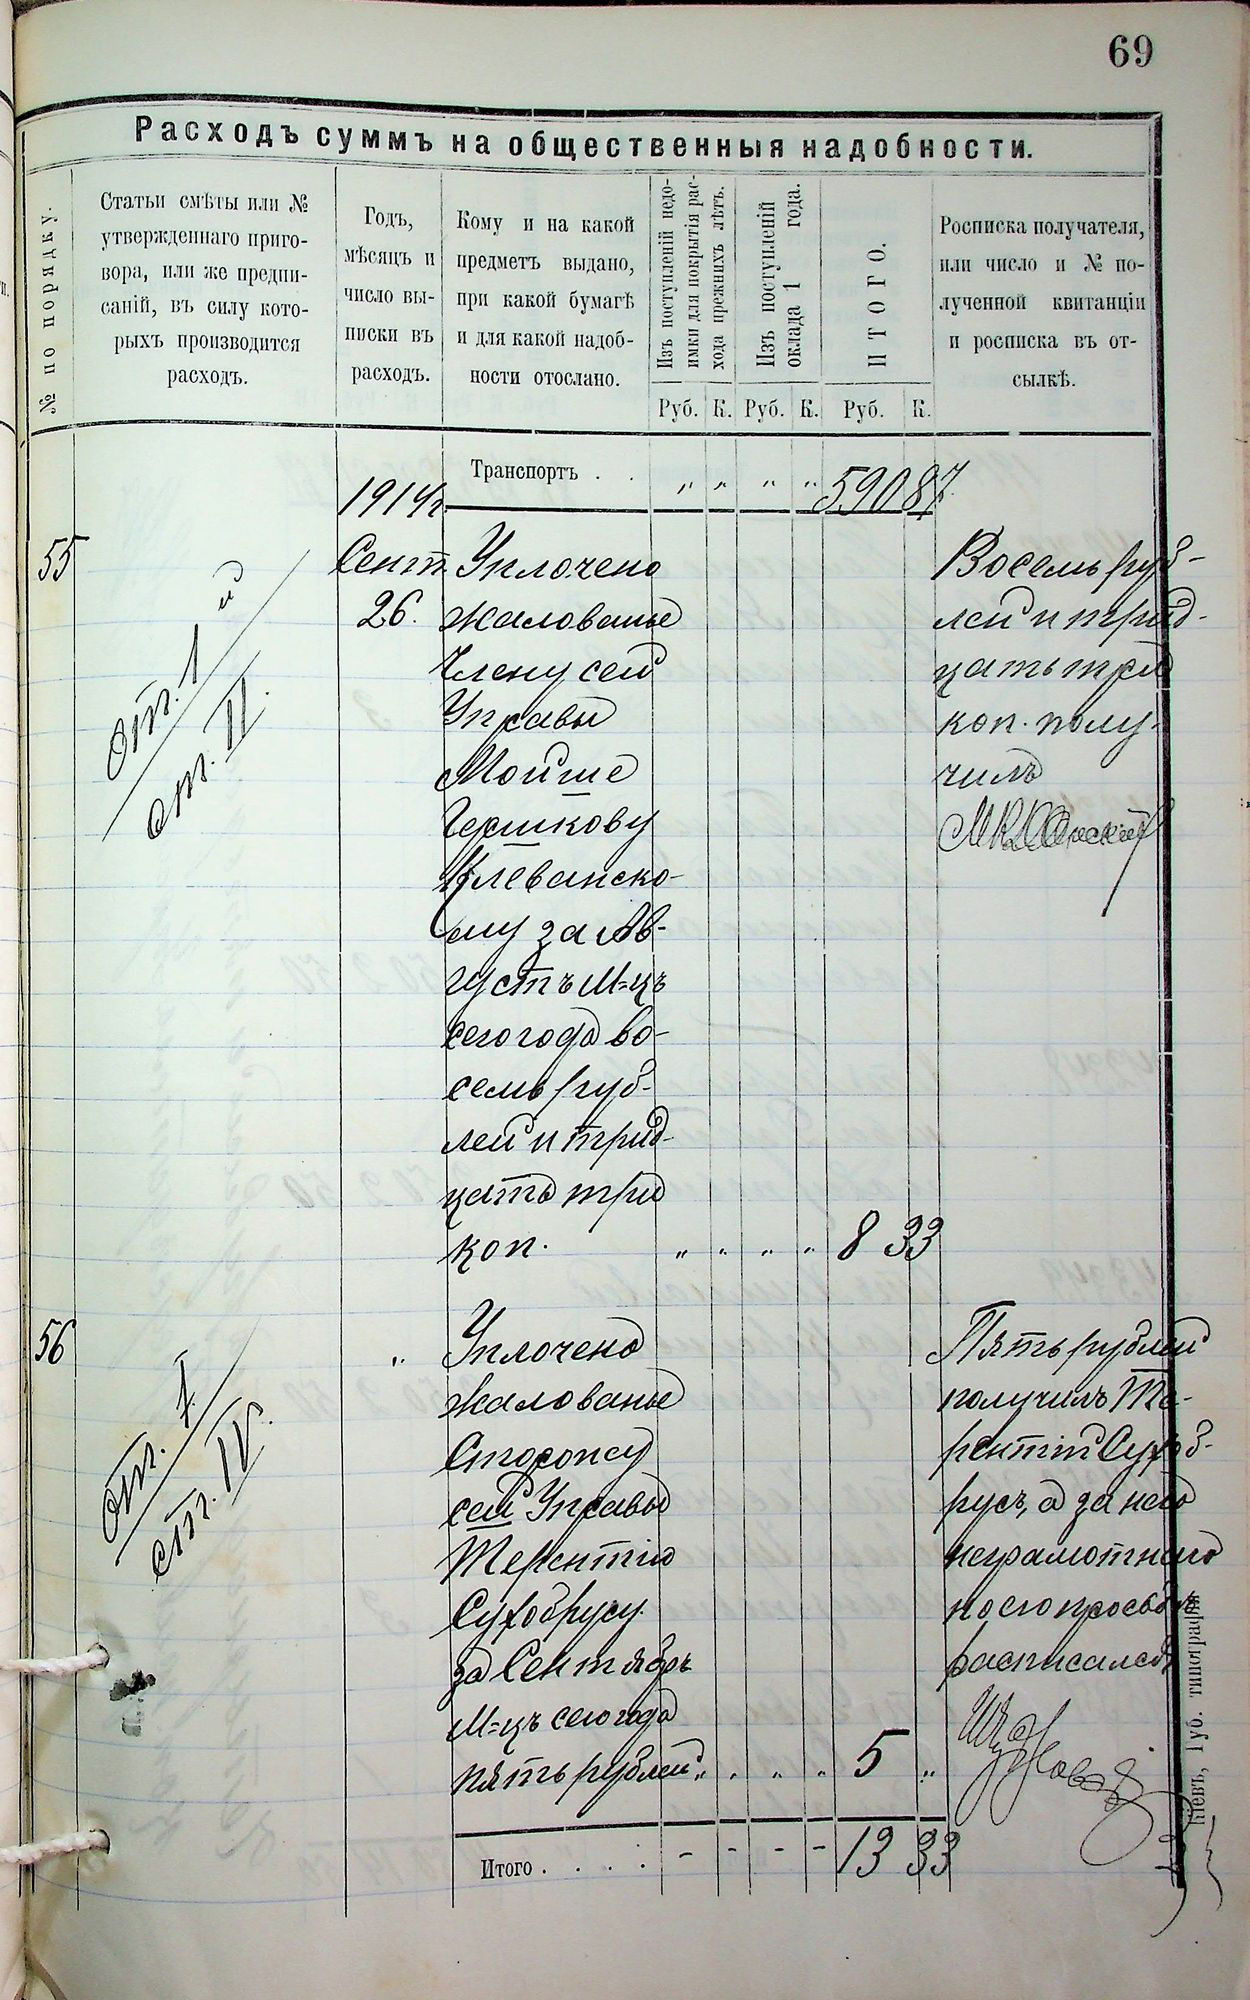 69
Расходъ суммъ на общественныя надобности.
№ по порядку.
Статьи смѣты или №
утвержденнаго приго-
вора, или же предпи-
саній, въ силу кото-
рыхъ производится
расходъ.
Годъ,
мѣсяцъ и
число вы-
писки въ
расходъ.
Кому и на какой
предметъ выдано,
при какой бумагѣ
и для какой надоб-
ности отослано.
Изъ поступленій недо-
имки для покрытія рас-
хода прежнихъ лѣтъ.
Изъ поступленій
оклада 1 года.
ИТОГО.
Росписка получателя,
или число и № по-
лученной квитанціи
и росписка въ от-
сылкѣ.
Руб. К. Руб. К. Руб. К.
Транспортъ . . " " " " 590 87
1914г
55
отг. 1
ст. II.
Сент.
26.
Уплочено
жалованье
Члену сей
Управы
Мойше
Гершкову
Клеванско-
му за Ав-
густъ М-цъ
сего года во-
семь руб-
лей и трид-
цать три
коп. " " " " 8 33
Восемь руб-
лей и трид-
цать три
коп. полу-
чилъ
56
отг. I.
ст. IV.
"
Уплочено
жалованье
Сторожу
сей Управы
Терентію
Сухобрусу
за Сентябрь
М-цъ сего года
пять рублей " " " " 5 "
Пять рублей
получилъ Те-
рентій Сухоб-
русъ, а за него
неграмотнаго
по его просьбѣ
расписался
Итого . . . . - - - - 13 33
Кіевъ, Губ. типографія